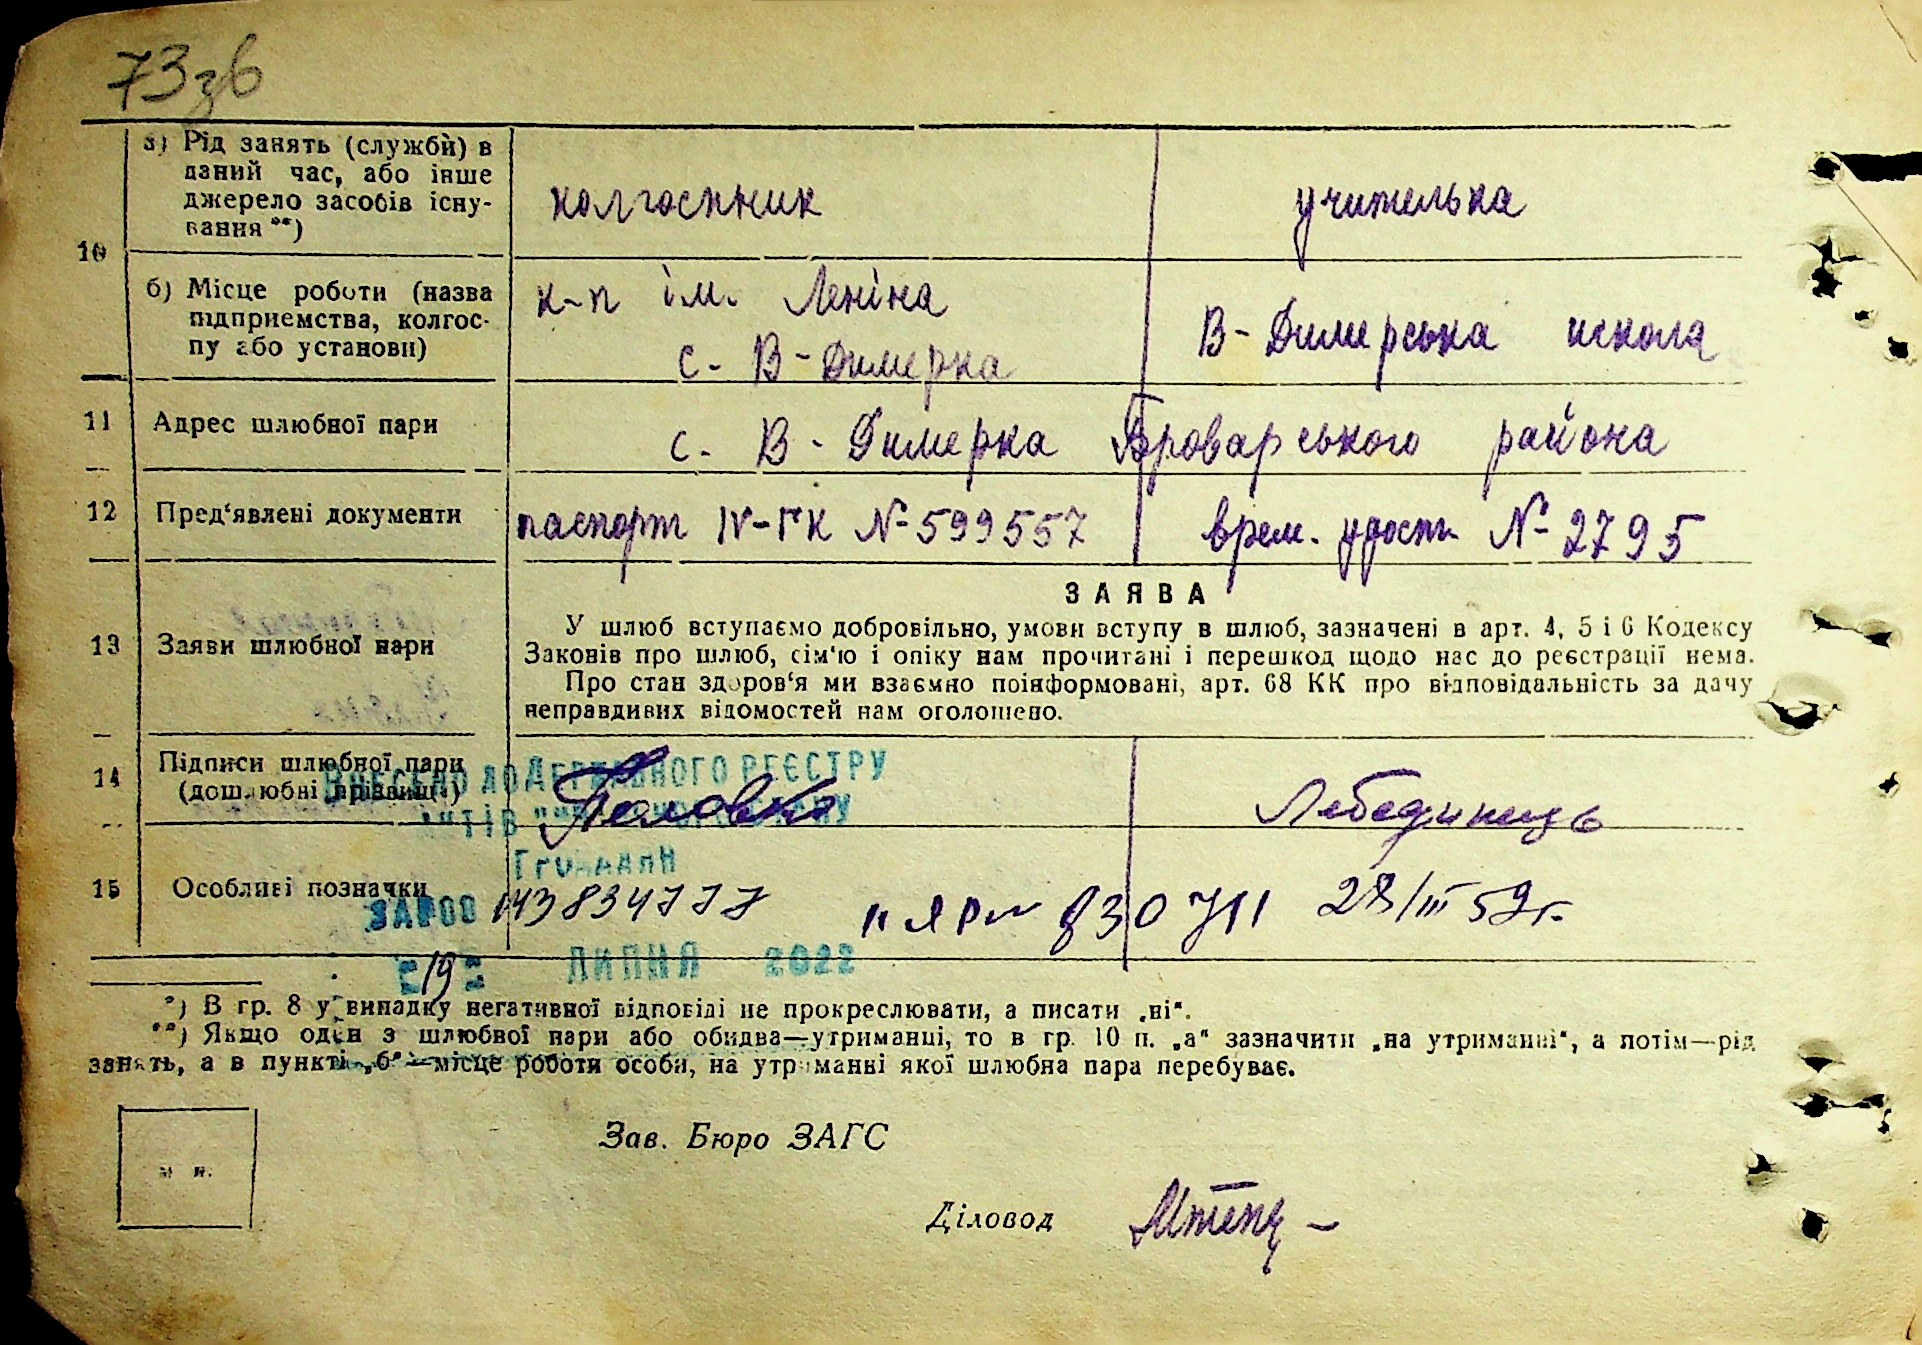 73зв
10
а) Рід занять (служби) в
даний час, або інше
джерело засобів існу-
вання **)
колгоспник
учителька
б) Місце роботи (назва
підприємства, колгос-
пу або установи)
к-п ім. Леніна
с. В-Димерка
В-Димерська школа
11 Адрес шлюбної пари
с. В-Димерка Броварського района
12 Пред'явлені документи
паспорт IV-ГК № 599557
врем. удост. № 2795
13 Заяви шлюбної пари
ЗАЯВА
У шлюб вступаємо добровільно, умови вступу в шлюб, зазначені в арт. 4, 5 і 6 Кодексу
Законів про шлюб, сім'ю і опіку нам прочитані і перешкод щодо нас до реєстрації нема.
Про стан здоров'я ми взаємно поінформовані, арт. 68 КК про відповідальність за дачу
неправдивих відомостей нам оголошено.
14 Підписи шлюбної пари
(дошлюбні прізвища)
Половко
Лебединець
ВНЕСЕНО ДО ДЕРЖАВНОГО РЕЄСТРУ
АКТІВ ЦИВІЛЬНОГО СТАНУ
ГРОМАДЯН
15 Особливі позначки
ЗА №00 143834777
19 ЛИПНЯ 2022
28/III 59г.
*) В гр. 8 у випадку негативної відповіді не прокреслювати, а писати „ні".
**) Якщо один з шлюбної пари або обидва—утриманці, то в гр. 10 п. „а" зазначити „на утриманні", а потім—рід
занять, а в пункті „б"—місце роботи особи, на утриманні якої шлюбна пара перебуває.
Зав. Бюро ЗАГС
м п.
Діловод